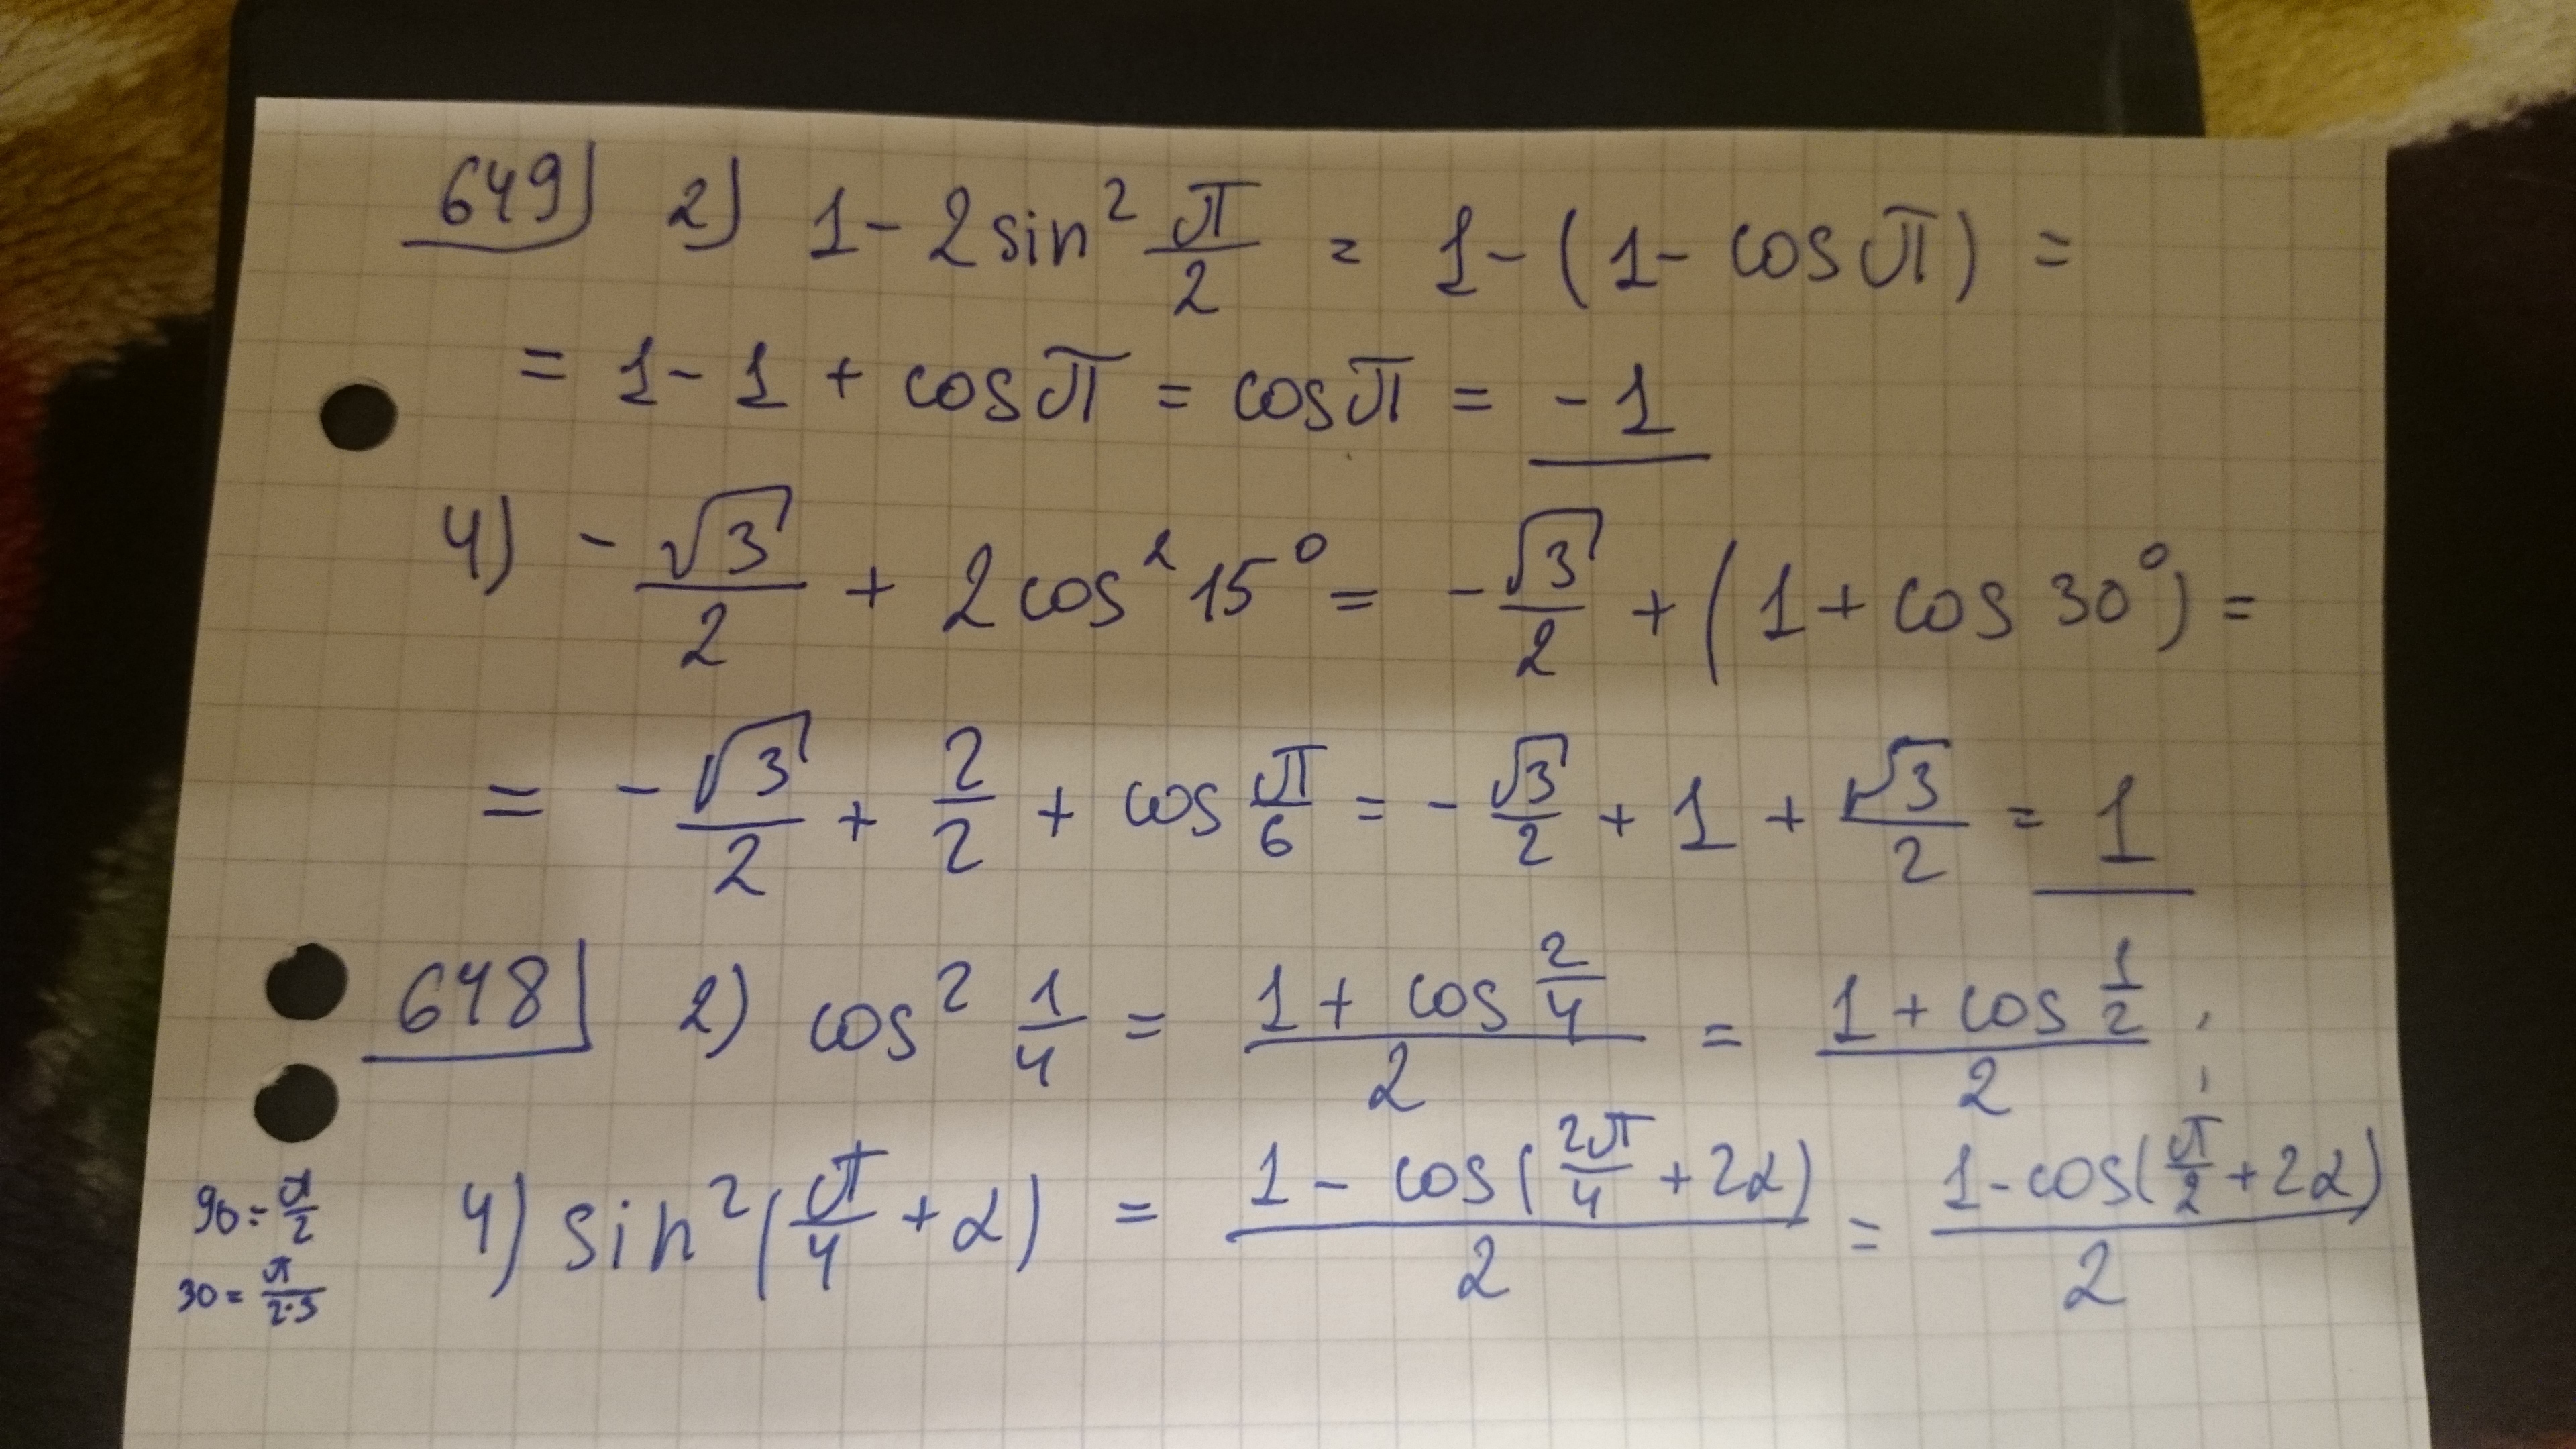 649) 2) 1 - 2 sin² π/2 = 1 - (1 - cos π) =
= 1 - 1 + cos π = cos π = -1
4) - √3/2 + 2 cos² 15° = - √3/2 + (1 + cos 30°) =
= - √3/2 + 2/2 + cos π/6 = - √3/2 + 1 + √3/2 = 1
648 2) cos² 1/4 = (1 + cos 2/4)/2 = (1 + cos 1/2)/2 ;
4) sin² (π/4 + α) = (1 - cos(2π/4 + 2α))/2 = (1 - cos(π/2 + 2α))/2
90 = π/2
30 = π/(2·3)